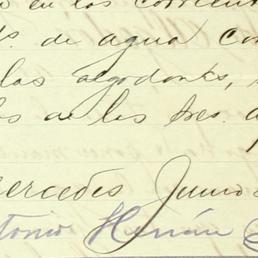 en los corrient
de agua con
las algodones,
de los tres.
Mercedes Junio
Antonio Hernán